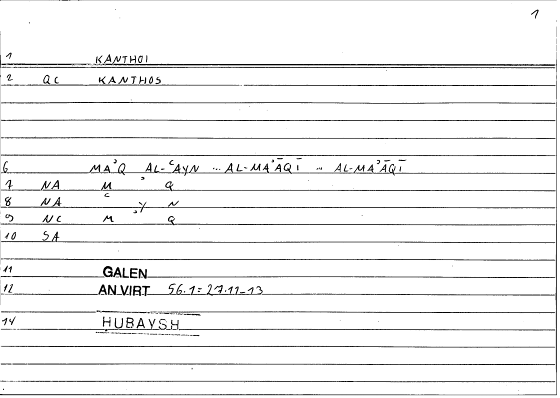 1
1 KANTHOI
2 QC KANTHOS
6 MAʾQ AL-ʿAYN ... AL-MAʾĀQĪ ... AL-MAʾĀQĪ
7 NA M ʾ Q
8 NA ʿ Y N
9 NC M ʾ Q
10 SA
11 GALEN
12 AN VIRT 56.1 = 27.11-13
14 ḤUBAYSH